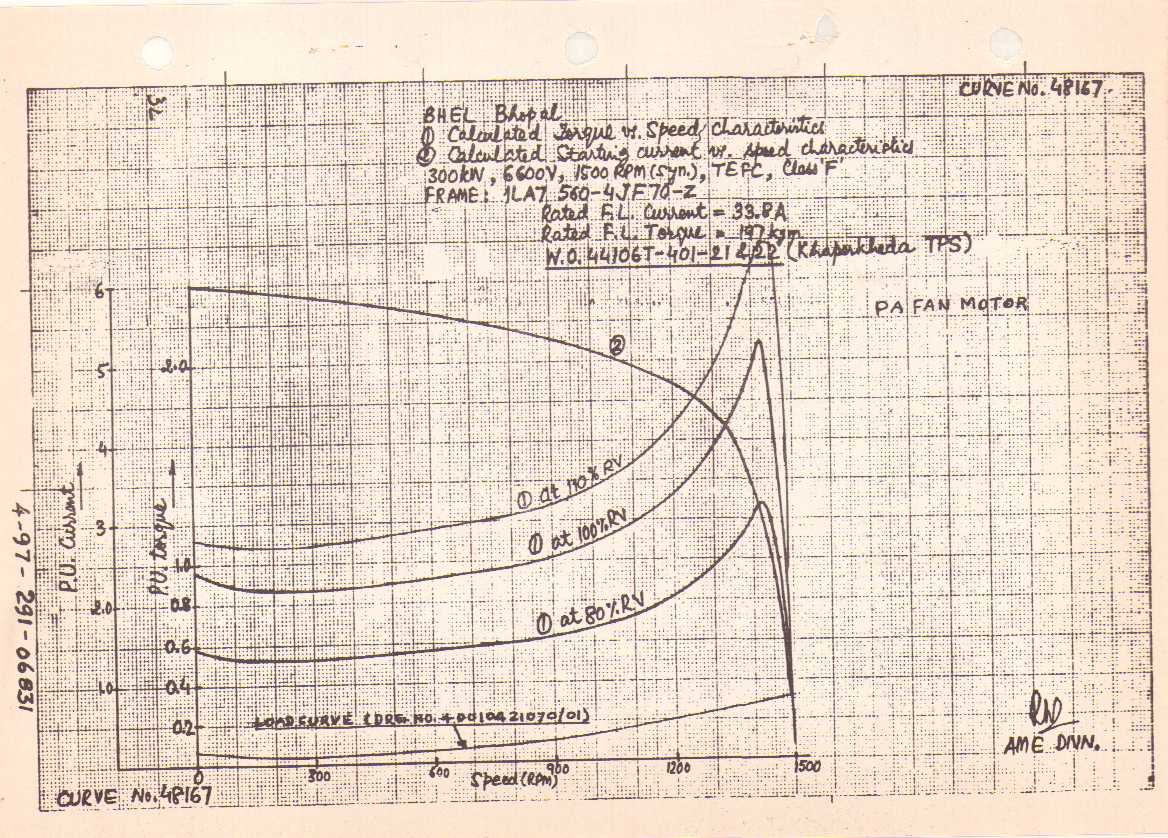 CURVE No. 48167.
32
BHEL Bhopal
① Calculated Torque vs. Speed characteristics
② Calculated Starting current vs. speed characteristics
300kW, 6600V, 1500 RPM (syn.), TEFC, Class 'F'
FRAME: 1LA7 560-4JF70-Z
Rated F.L. Current = 33.8A
Rated F.L. Torque = 197 kgm
W.O. 44106T-401-21 & 22 (Khaperkheda TPS)
PA FAN MOTOR
6
②
5
2.0
4
① at 110% RV
P.U. Current
P.U. torque
3
① at 100% RV
1.0
2.0
0.8
① at 80% RV
0.6
1.0
0.4
LOAD CURVE (DRG. NO. 40010421070/01)
0.2
4-97-291-06831
AME DIVN.
0
300
600
900
1200
1500
Speed (RPM)
CURVE No. 48167